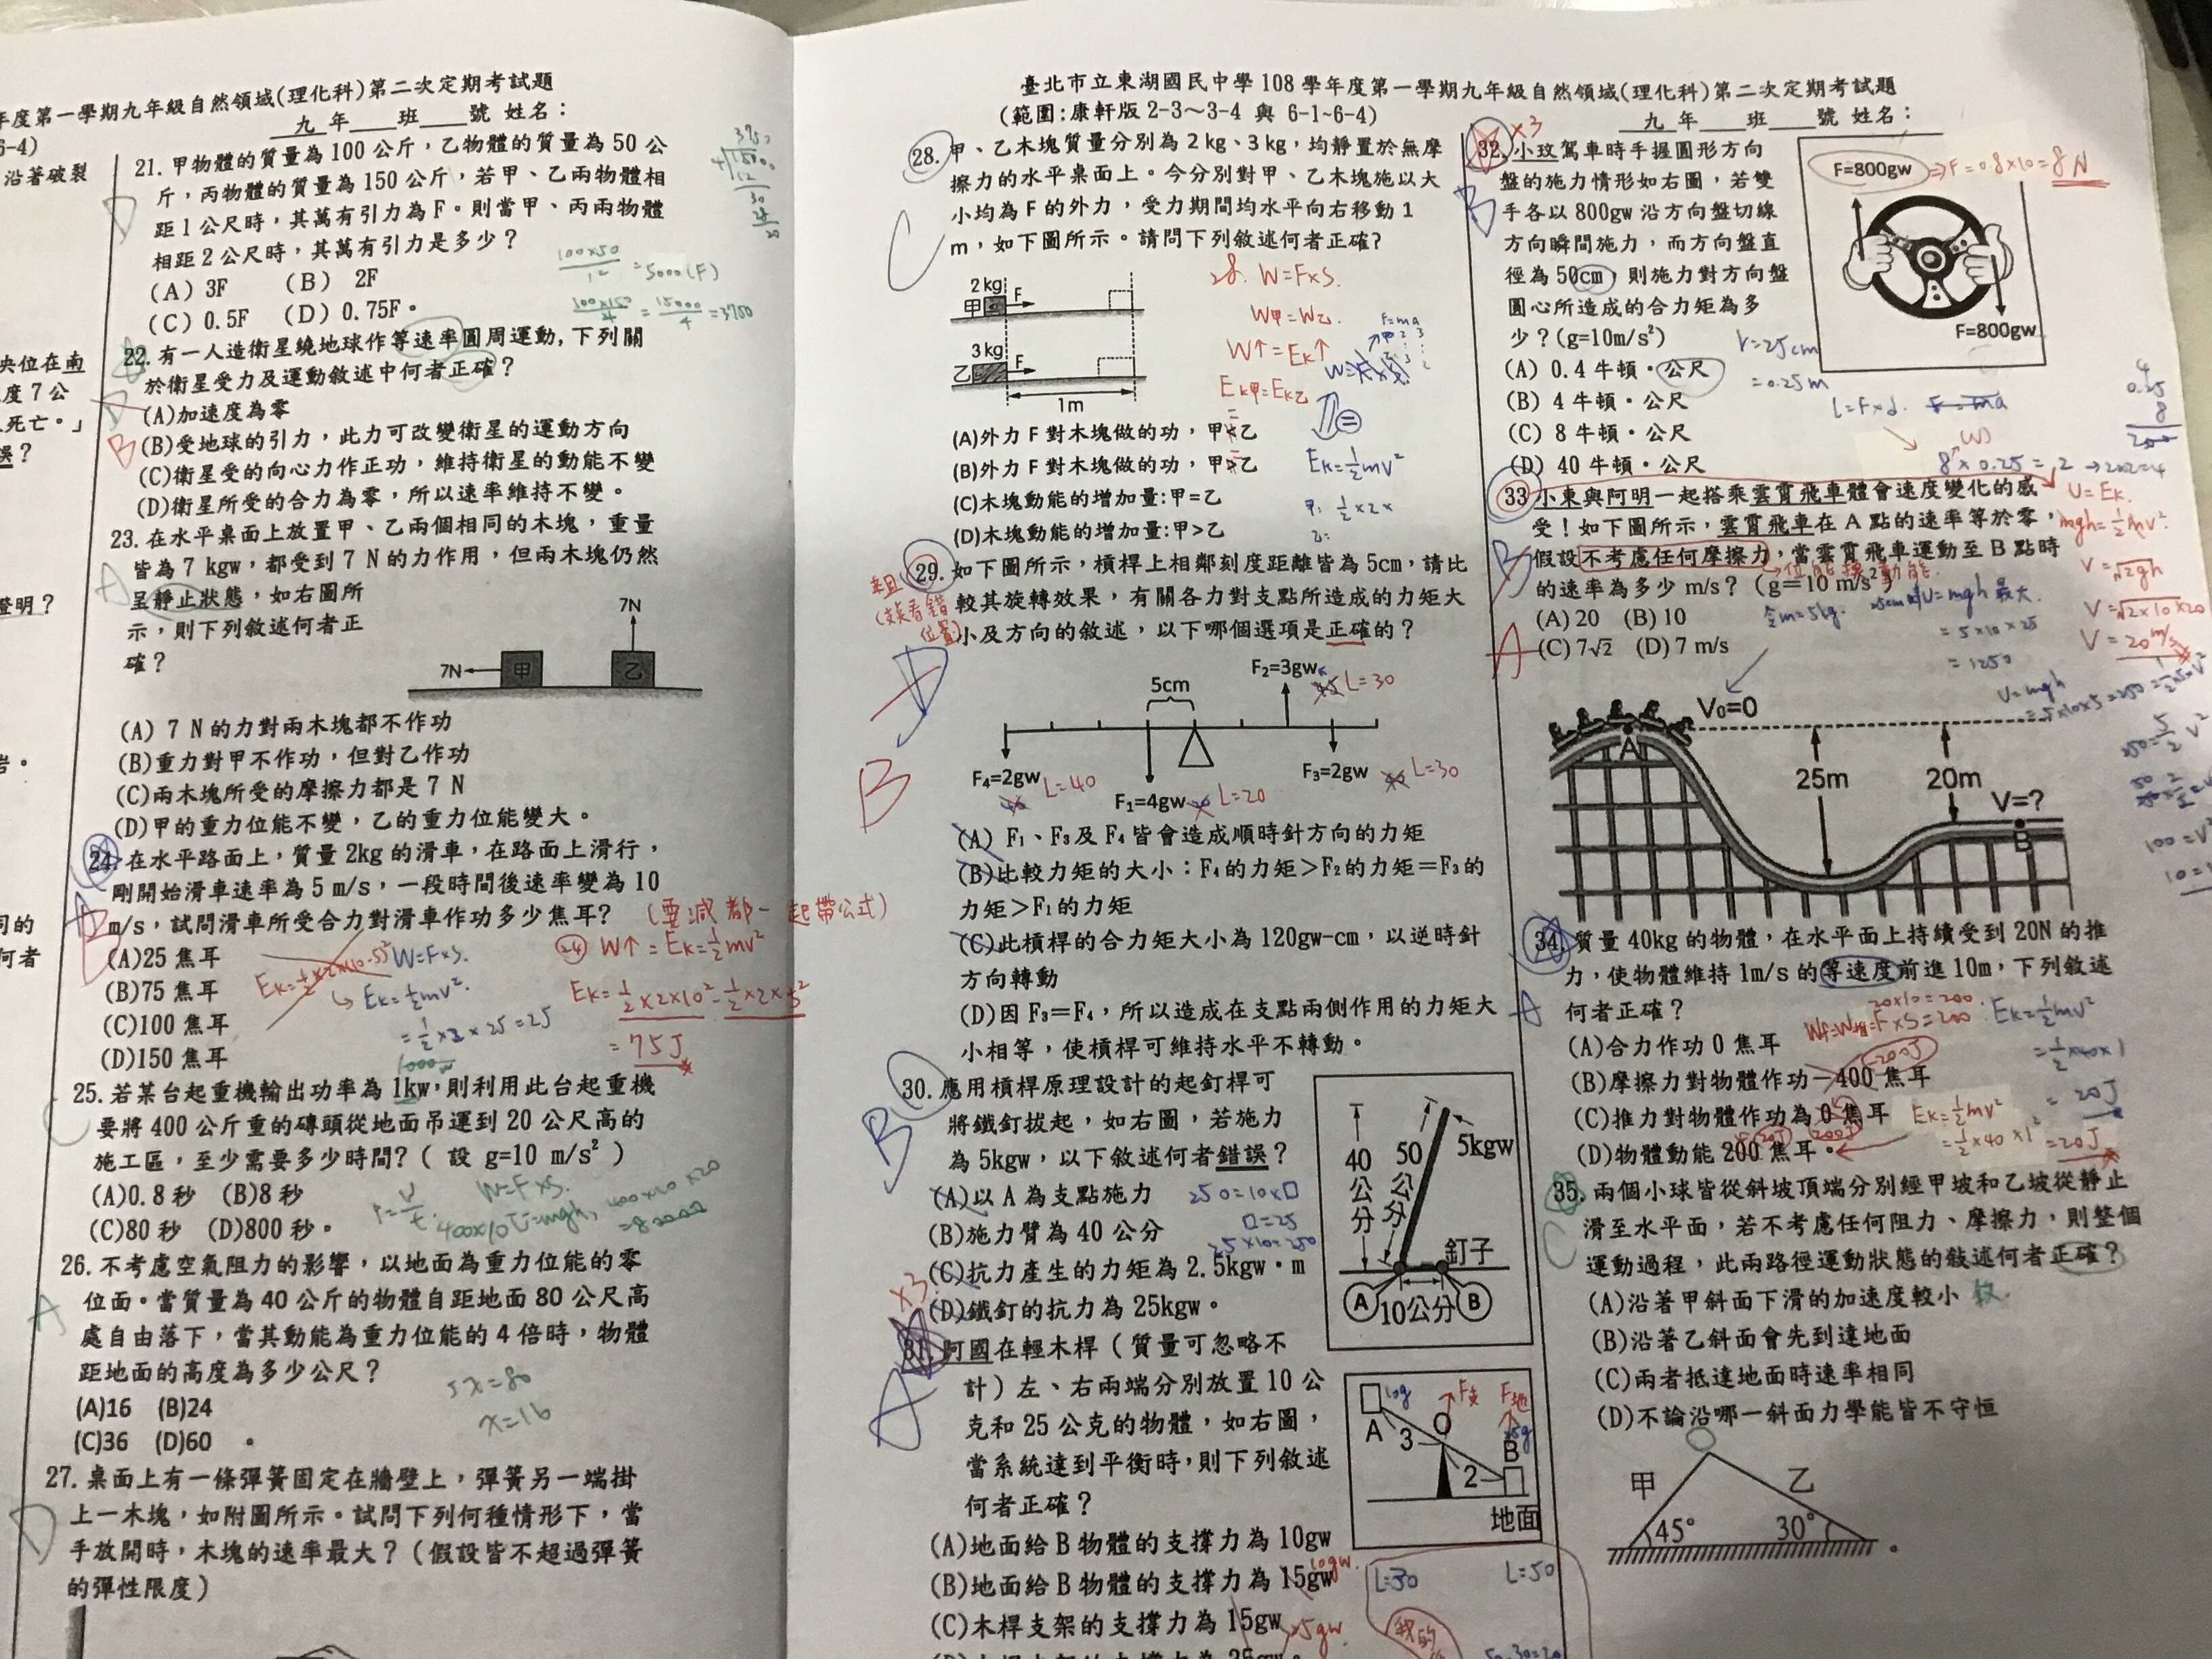 年度第一學期九年級自然領域(理化科)第二次定期考試題
九 年 班 號 姓名：
6-4)
沿著破裂
央位在南
度7公
死亡。」
誤？
證明？
岩。
同的
何者
21. 甲物體的質量為 100 公斤，乙物體的質量為 50 公
斤，丙物體的質量為 150 公斤，若甲、乙兩物體相
距 1 公尺時，其萬有引力為 F。則當甲、丙兩物體
相距 2 公尺時，其萬有引力是多少？
(A) 3F (B) 2F
(C) 0.5F (D) 0.75F。
D
100×50
1² =5000(F)
100×150
4 = 15000
4 =3750
22. 有一人造衛星繞地球作等速率圓周運動，下列關
於衛星受力及運動敘述中何者正確？
(A)加速度為零
(B)受地球的引力，此力可改變衛星的運動方向
(C)衛星受的向心力作正功，維持衛星的動能不變
(D)衛星所受的合力為零，所以速率維持不變。
B
23. 在水平桌面上放置甲、乙兩個相同的木塊，重量
皆為 7 kgw，都受到 7 N 的力作用，但兩木塊仍然
呈靜止狀態，如右圖所
示，則下列敘述何者正
確？
A
7N
7N
甲
乙
(A) 7 N 的力對兩木塊都不作功
(B)重力對甲不作功，但對乙作功
(C)兩木塊所受的摩擦力都是 7 N
(D)甲的重力位能不變，乙的重力位能變大。
24. 在水平路面上，質量 2kg 的滑車，在路面上滑行，
剛開始滑車速率為 5 m/s，一段時間後速率變為 10
m/s，試問滑車所受合力對滑車作功多少焦耳？
(要減都一起帶公式)
(A)25 焦耳
(B)75 焦耳
(C)100 焦耳
(D)150 焦耳
W=F×S.
Ek=½mv².
=½×2×25=25
24 W↑=Ek=½mv²
Ek=½×2×10²-½×2×5²
=75J
1000w
25. 若某台起重機輸出功率為 1kw，則利用此台起重機
要將 400 公斤重的磚頭從地面吊運到 20 公尺高的
施工區，至少需要多少時間？( 設 g=10 m/s² )
(A)0.8 秒 (B)8 秒
(C)80 秒 (D)800 秒。
C
W=F×S.
26. 不考慮空氣阻力的影響，以地面為重力位能的零
位面。當質量為 40 公斤的物體自距地面 80 公尺高
處自由落下，當其動能為重力位能的 4 倍時，物體
距地面的高度為多少公尺？
(A)16 (B)24
(C)36 (D)60 。
A
5x=80
x=16
27. 桌面上有一條彈簧固定在牆壁上，彈簧另一端掛
上一木塊，如附圖所示。試問下列何種情形下，當
手放開時，木塊的速率最大？(假設皆不超過彈簧
的彈性限度)
D
臺北市立東湖國民中學 108 學年度第一學期九年級自然領域(理化科)第二次定期考試題
(範圍:康軒版 2-3～3-4 與 6-1~6-4)
九 年 班 號 姓名：
28. 甲、乙木塊質量分別為 2 kg、3 kg，均靜置於無摩
擦力的水平桌面上。今分別對甲、乙木塊施以大
小均為 F 的外力，受力期間均水平向右移動 1
m，如下圖所示。請問下列敘述何者正確?
C
2 kg
甲
F
3 kg
乙
F
1m
28. W=F×S.
W甲=W乙.
W↑=Ek↑
Ek甲=Ek乙
F=ma
Ek=½mv²
(A)外力 F 對木塊做的功，甲<乙
(B)外力 F 對木塊做的功，甲>乙
(C)木塊動能的增加量:甲=乙
(D)木塊動能的增加量:甲>乙
29. 如下圖所示，槓桿上相鄰刻度距離皆為 5cm，請比
較其旋轉效果，有關各力對支點所造成的力矩大
小及方向的敘述，以下哪個選項是正確的？
B
F₂=3gw
L=30
5cm
F₄=2gw
L=40
F₁=4gw
L=20
F₃=2gw
L=30
(A) F₁、F₃及 F₄ 皆會造成順時針方向的力矩
(B)比較力矩的大小：F₄的力矩＞F₂的力矩＝F₃的
力矩＞F₁的力矩
(C)此槓桿的合力矩大小為 120gw-cm，以逆時針
方向轉動
(D)因 F₃＝F₄，所以造成在支點兩側作用的力矩大
小相等，使槓桿可維持水平不轉動。
30. 應用槓桿原理設計的起釘桿可
將鐵釘拔起，如右圖，若施力
為 5kgw，以下敘述何者錯誤？
(A)以 A 為支點施力
(B)施力臂為 40 公分
(C)抗力產生的力矩為 2.5kgw·m
(D)鐵釘的抗力為 25kgw。
B
250=10×□
□=25
25×10=250
40公分
50公分
5kgw
釘子
A
10公分
B
×3
31. 阿國在輕木桿（質量可忽略不
計）左、右兩端分別放置 10 公
克和 25 公克的物體，如右圖，
當系統達到平衡時，則下列敘述
何者正確？
A
10g
F支
F地
A
3
O
2
B
地面
(A)地面給 B 物體的支撐力為 10gw
(B)地面給 B 物體的支撐力為 15gw
10gw.
(C)木桿支架的支撐力為 15gw
25gw.
L=30
L=50
×3
32. 小玫駕車時手握圓形方向
盤的施力情形如右圖，若雙
手各以 800gw 沿方向盤切線
方向瞬間施力，而方向盤直
徑為 50cm，則施力對方向盤
圓心所造成的合力矩為多
少？(g=10m/s²)
(A) 0.4 牛頓·公尺
(B) 4 牛頓·公尺
(C) 8 牛頓·公尺
(D) 40 牛頓·公尺
B
F=800gw
⇒F=0.8×10=8N
F=800gw
r=25cm
=0.25m
L=F×d.
8×0.25=2→2×2=4
33. 小東與阿明一起搭乘雲霄飛車體會速度變化的感
受！如下圖所示，雲霄飛車在 A 點的速率等於零，
假設不考慮任何摩擦力，當雲霄飛車運動至 B 點時
的速率為多少 m/s？(g=10 m/s²)
(A) 20 (B) 10
(C) 7√2 (D) 7 m/s
A
U=Ek.
mgh=½mv².
V=√2gh
V=√2×10×20
V=20m/s
V₀=0
A
25m
20m
V=?
B
34. 質量 40kg 的物體，在水平面上持續受到 20N 的推
力，使物體維持 1m/s 的等速度前進 10m，下列敘述
何者正確？
(A)合力作功 0 焦耳
(B)摩擦力對物體作功－400 焦耳
(C)推力對物體作功為 0 焦耳
(D)物體動能 200 焦耳。
A
20×10=200
Ek=½mv²
=½×40×1
=20J
-200J
Ek=½mv²
=½×40×1²=20J
35. 兩個小球皆從斜坡頂端分別經甲坡和乙坡從靜止
滑至水平面，若不考慮任何阻力、摩擦力，則整個
運動過程，此兩路徑運動狀態的敘述何者正確？
(A)沿著甲斜面下滑的加速度較小
(B)沿著乙斜面會先到達地面
(C)兩者抵達地面時速率相同
(D)不論沿哪一斜面力學能皆不守恒
C
甲
乙
45°
30°